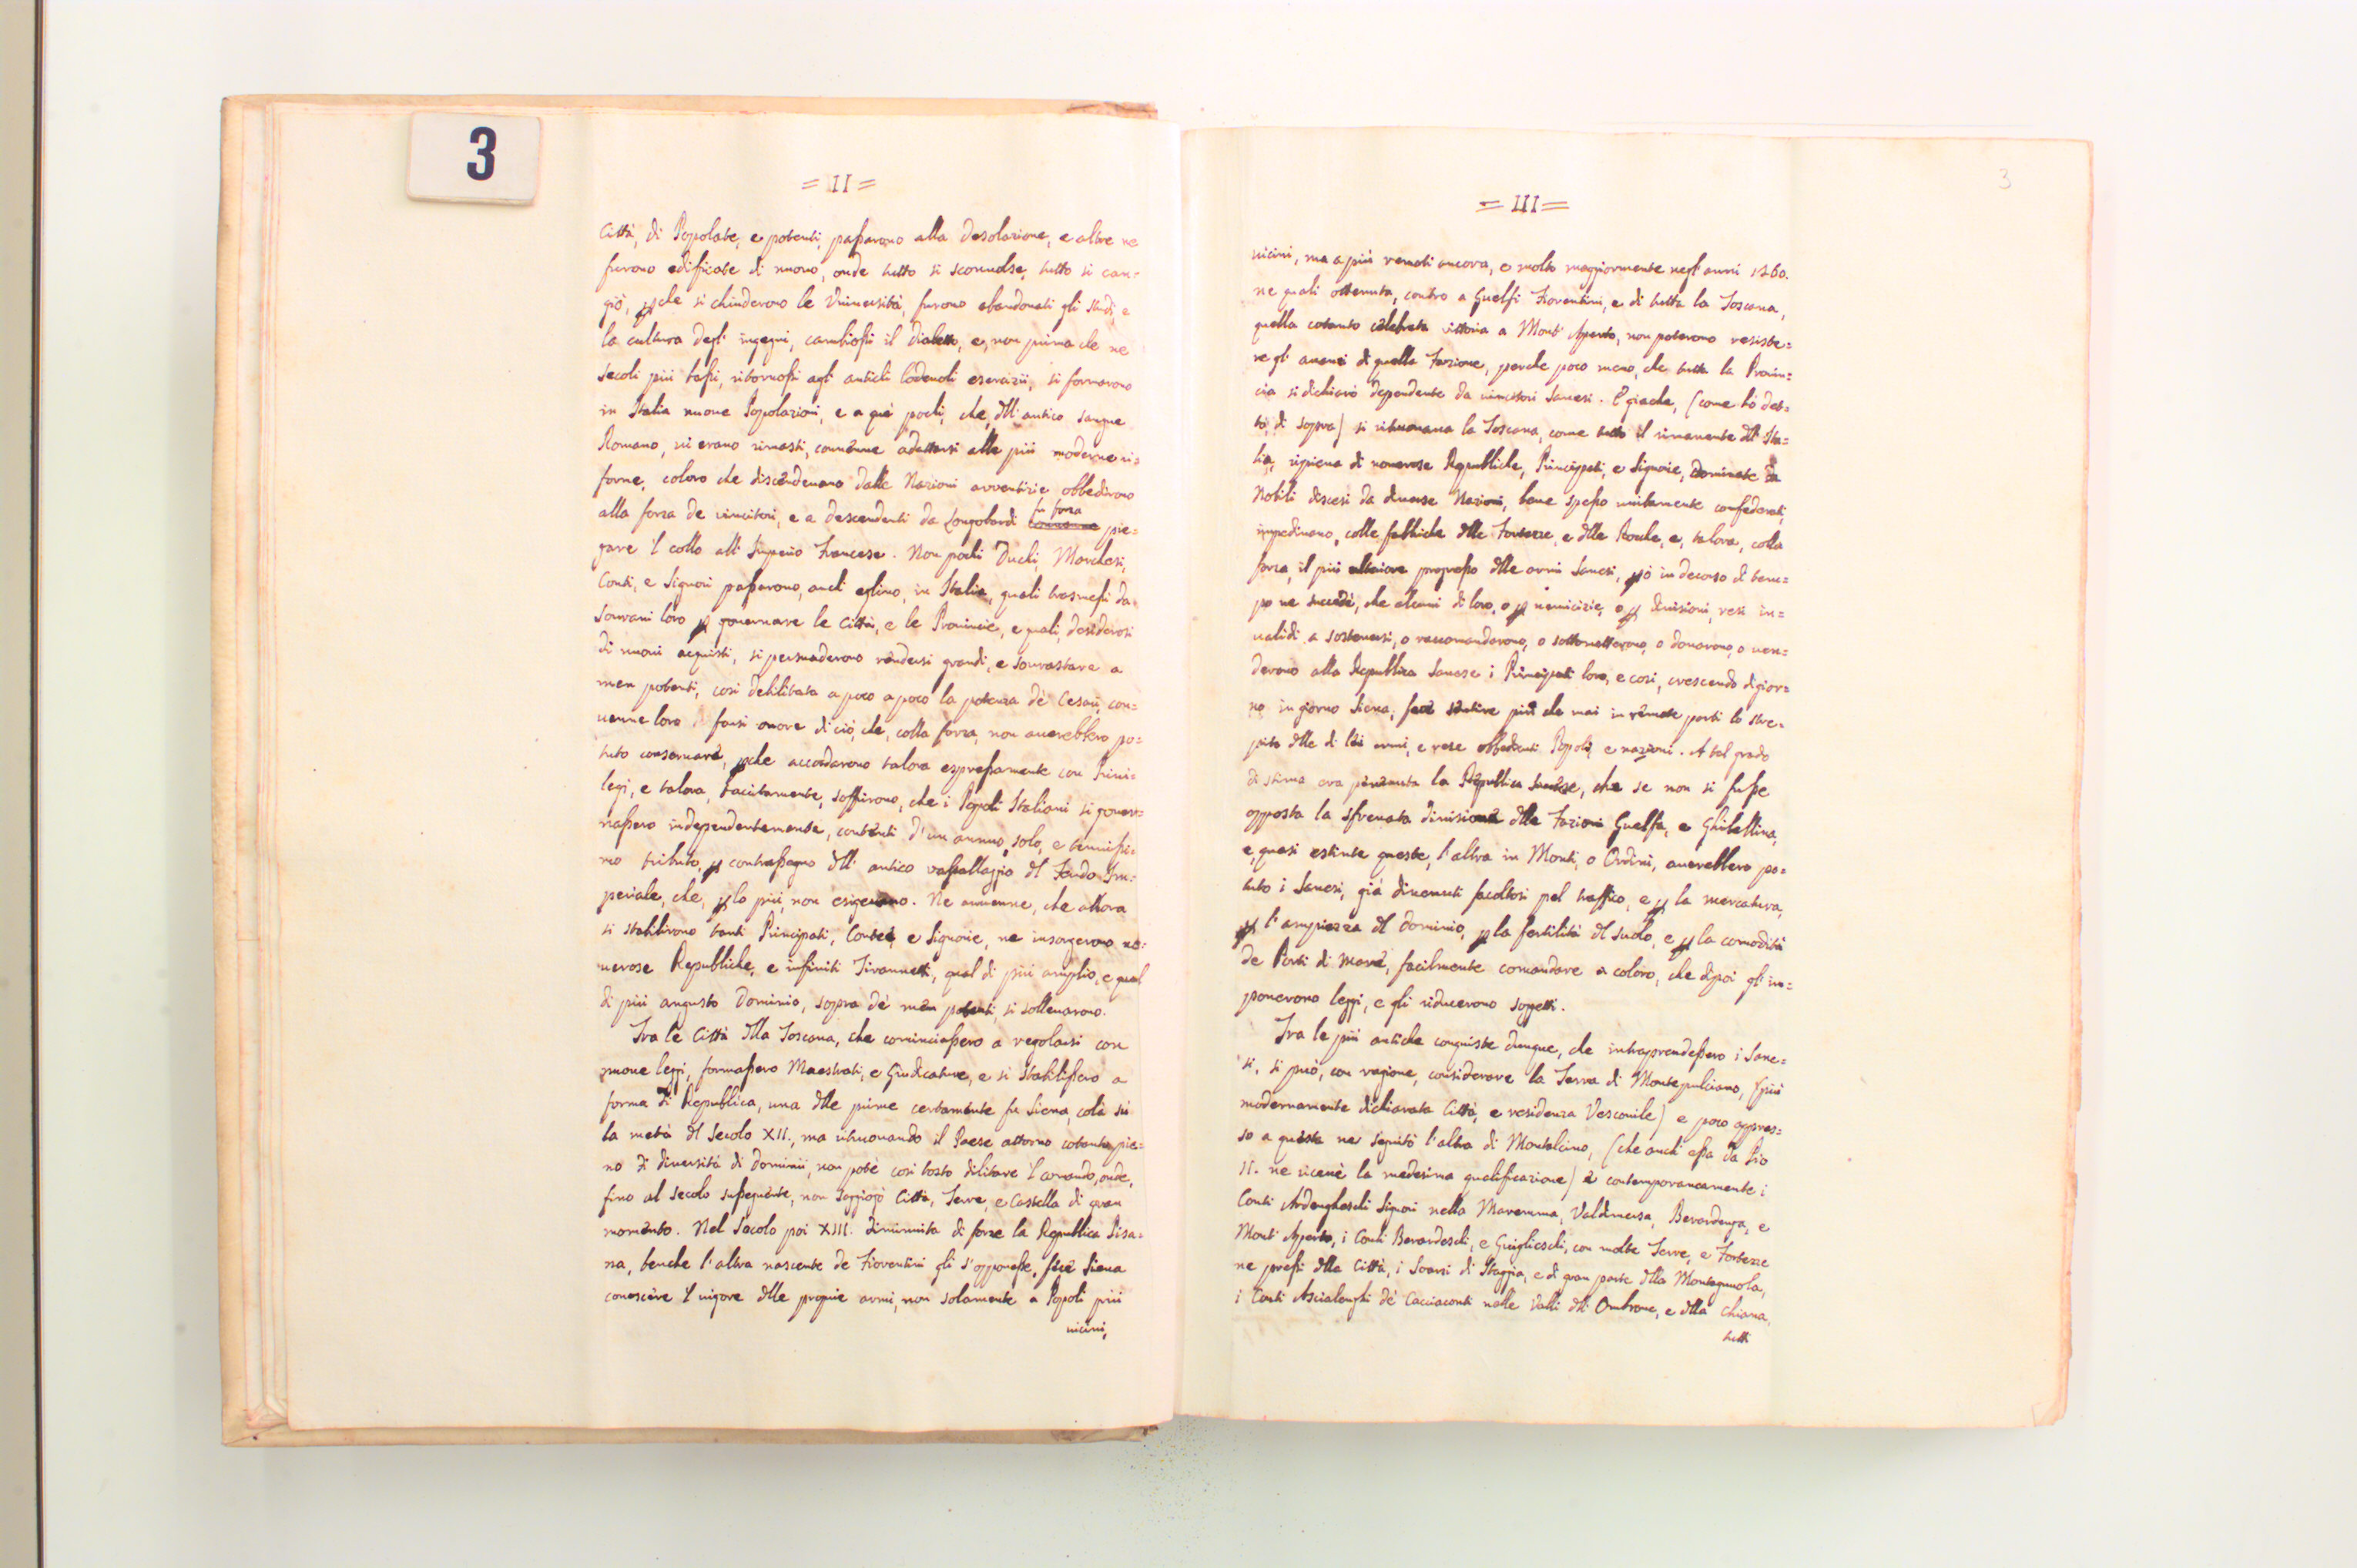 3
= II =
Città, di Popolate, e potenti, passarono alla desolazione, e altre ne
furono edificate di nuovo, onde tutto si sconvolse, tutto si can=
giò, pche si chiuderono le Università, furono abandonati gli studi, e
la cultura degl' ingegni, cambiossi il dialetto, e, non prima che ne
secoli più bassi, ritornossi agl' antichi lodevoli esercizii, si formarono
in Italia nuove Popolazioni, e a què pochi, che, dll' antico sangue
Romano, vi erano rimasti, convenne adattarsi alle più moderne ri=
forme, coloro che discendevano dalle Nazioni avventizie obbedirono
alla forza de vincitori, e a descendenti da Longobardi fu forza pie=
gare 'l collo all' Imperio Francese. Non pochi Duchi, Marchesi,
Conti, e Signori passarono, anch' eglino, in Italia, quali trasmessi da
Sovrani loro p governare le Città, e le Provincie, e quali, desiderosi
di nuovi acquisti, si persuaderono rendersi grandi, e sovrastare a
men potenti, così debilitata a poco a poco la potenza dè Cesari, con=
venne loro farsi onore di ciò, che, colla forza, non averebbero po=
tuto conservare, pche accordarono talora espressamente con Privi=
legi, e talora, tacitamente, soffrirono, che i Popoli Italiani si gover=
nassero independentemente, contenti d' un annuo, solo, e tenuissi=
mo tributo, p contrassegno dll' antico vassallaggio dl Feudo Im=
periale, che, p lo più, non esigevano. Ne avvenne, che allora
si stabilirono tanti Principati, Contee, e Signorie, ne insorgerono nu=
merose Republiche, e infiniti Tirannetti, qual di più amplio, e qual
di più angusto Dominio, sopra dè men potenti, si sollevarono.
Tra le Città dlla Toscana, che cominciassero a regolarsi con
nuove leggi, formassero Maestrati, e Giudicature, e si stabilissero a
forma di Republica, una dlle prime certamente fu Siena, colà sù
la metà dl Secolo XII., ma ritrovando il Paese attorno cotanto pie=
no di diversità di dominii, non potè così tosto dilitare 'l comando, onde,
fino al secolo susseguente, non soggiogò Città, Terre, e Castella di gran
momento. Nel Secolo poi XIII. diminuita di forze la Republica Pisa=
na, benche l' altra nascente de Fiorentini gli s' opponesse, fece Siena
conoscere 'l vigore dlle proprie armi, non solamente a Popoli più
vicini,
3
= III =
vicini, ma a più remoti ancora, e molto maggiormente negl' anni 1260.
ne quali ottenuta, contro a Guelfi Fiorentini, e di tutta la Toscana,
quella cotanto celebrata vittoria a Mont' Aperto, non poterono resiste=
re gl' amenti di quella Fazione, perche poco meno, che tutta la Provin=
cia si dichiarò dependente da vincitori Sanesi. E giache, (come hò det=
to, di sopra) si ritrovava la Toscana, come tutto il rimanente dll' Ita=
lia, ripiena di numerose Republiche, Principati, e Signorie, dominate da
Nobili discesi da diverse Nazioni, bene spesso unitamente confederati,
impedivano, colle fabbriche dlle Fortezze, e dlle Rocche, e, talora, colla
forza, il più ulteriore progresso dlle armi Sanesi, pò in decorso di tem=
po ne succedè, che alcuni di loro, o p nemicizie, o p divisioni, resi in=
validi a sostenersi, o raccomandarono, o sottomettarono, o donarono, o ven=
derono alla Republica Sanese i Principati loro, e così, crescendo di gior=
no in giorno Siena, fece sentire più che mai in remote parti lo stre=
pito dlle di lei armi, e rese obbedienti Popoli, e nazioni. A tal grado
di stima era pervenuta la Republica Sanese, che se non si fusse
opposta la sfrenata divisione dlle Fazioni Guelfa, e Ghibellina,
e, quasi estinte queste, l' altra in Monti, o Ordini, averebbero po=
tuto i Sanesi, già divenuti facoltosi pel traffico, e p la mercatura,
p l' ampiezza dl dominio, p la fertilità dl suolo, e p la comodità
de Porti di Mare, facilmente comandare a coloro, che dipoi gl' im=
ponerono leggi, e gli riducerono soggetti.
Tra le più antiche conquiste dunque, che intraprendessero i Sane=
si, si può, con ragione, considerare la Terra di Montepulciano, (più
modernamente dichiarata Città, e residenza Vescovile) e poco appres=
so a questa ne seguitò l' altra di Montalcino, (che anch' essa da Pio
II. ne ricevè la medesima qualificazione) e contemporaneamente i
Conti Ardengheschi Signori nella Maremma, Valdimersa, Berardenga, e
Mont' Aperto, i Conti Berardeschi, e Guiglieschi, con molte Terre, e Fortezze
ne pressi dlla Città, i Soarsi di Staggia, e di gran parte dlla Montagnuola,
i Conti Ascialenghi dè Cacciaconti nelle Valli dll' Ombrone, e dlla Chiana,
tutti